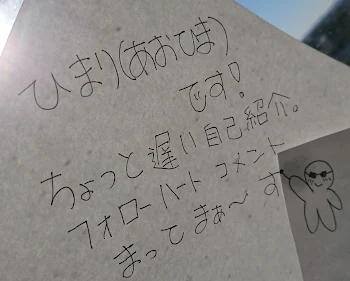 ひまり(あおひま)
です!
ちょっと遅い自己紹介。
フォローハートコメント
まってまぁ〜す